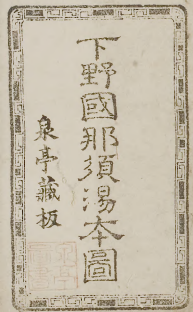 下野國那須湯本圖
泉亭藏板